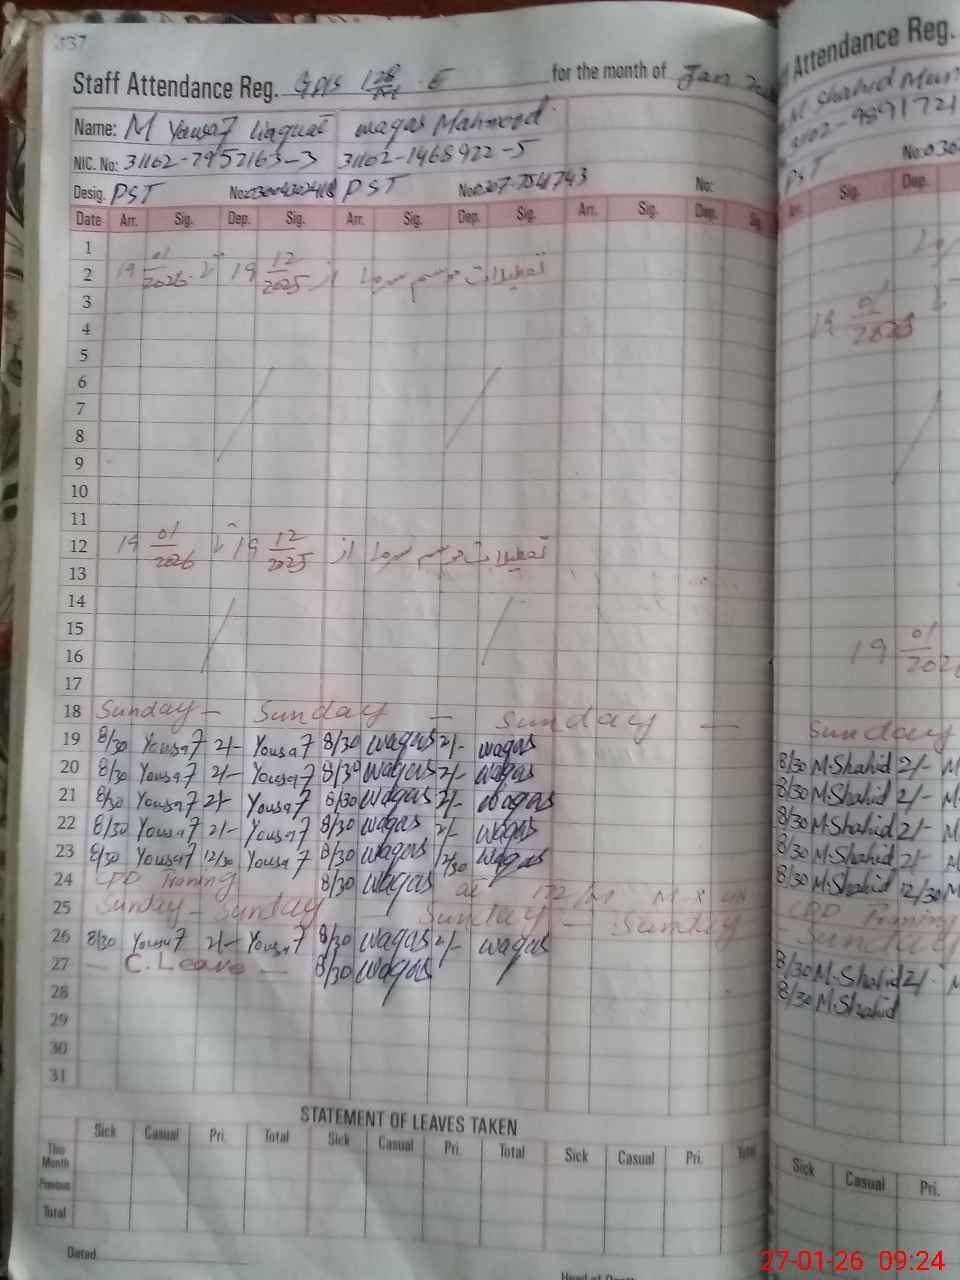 137
Staff Attendance Reg. GPS 128/M E for the month of Jan
Name: M Yousaf Liaquat waqas Mahmood
NIC. No: 31102-7952163-3 31102-1468922-5
Desig. PST No: PST No: 0307-7541743 No:
Date Arr. Sig. Dep. Sig. Arr. Sig. Dep. Sig. Arr. Sig. Dep. Sig.
1
2 تعطیلات موسم سرما از 19 12/2025 تا 19 01/2026
3
4
5
6
7
8
9
10
11
12 تعطیلات موسم سرما از 19 12/2025 تا 19 01/2026
13
14
15
16
17
18 Sunday - Sunday - Sunday -
19 8/30 Yousaf 2/- Yousaf 8/30 waqas 2/- waqas
20 8/30 Yousaf 2/- Yousaf 8/30 waqas 2/- waqas
21 8/30 Yousaf 2/- Yousaf 8/30 waqas 2/- waqas
22 8/30 Yousaf 2/- Yousaf 8/30 waqas 2/- waqas
23 8/30 Yousaf 12/30 Yousaf 8/30 waqas 12/30 waqas
24 CPD Traning 8/30 waqas at 172/M
25 Sunday - Sunday Sunday - Sunday
26 8/30 Yousaf 2/- Yousaf 8/30 waqas 2/- waqas
27 - C. Leave - 8/30 waqas
28
29
30
31
STATEMENT OF LEAVES TAKEN
Sick Casual Pri. Total Sick Casual Pri. Total Sick Casual Pri. Total
This Month
Previous
Total
Dated
Attendance Reg.
M Shahid
PST No:
Sig. Dep.
19 01
19 01
Sunday
8/30 M.Shahid 2/- M
8/30 M.Shahid 2/- M
8/30 M.Shahid 2/- M
8/30 M.Shahid 2/- M
8/30 M.Shahid 12/30 M
CPD Traning
- Sunday
8/30 M.Shahid 2/- M
8/30 M.Shahid
Sick Casual Pri.
27-01-26 09:24